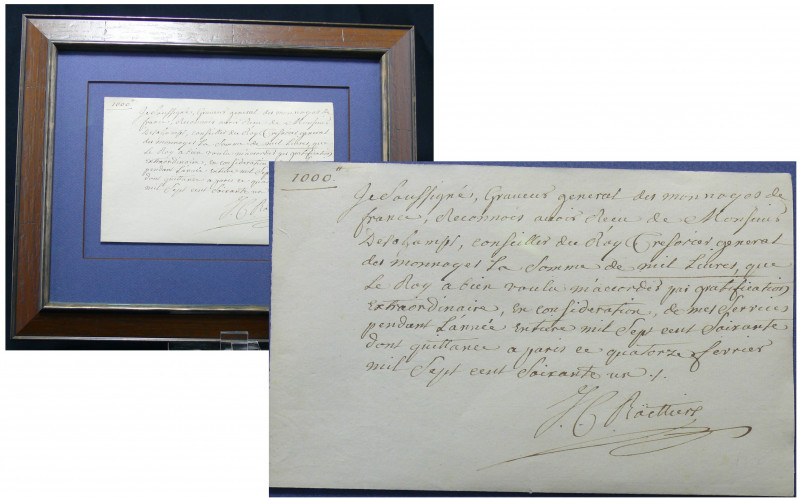 1000 ᴸᵗ
Je Soussigné, Graveur general des monnayes de
france, Reconnois avoir Reçu de Monsieur
Deschamps, conseiller du Roy Tresorier general
des monnayes La Somme de mil Livres, que
Le Roy a bien voulu m'accorder par gratification
Extraordinaire, en consideration, de mes Services
pendant L'année entiere mil Sept cent Soixante
dont quittance a paris ce quatorze fevrier
mil Sept cent Soixante un ./.
J. C. Roëttiers